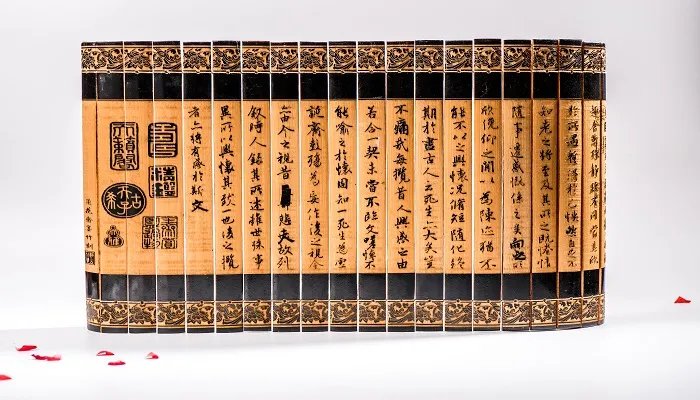 趣舍萬殊靜躁不同當其欣
於所遇蹔得於己怏然自足不
知老之將至及其所之既惓情
隨事遷感慨係之矣向之
欣俛仰之間以為陳迹猶不
能不以之興懷況脩短隨化終
期於盡古人云死生亦大矣豈
不痛哉每攬昔人興感之由
若合一契未嘗不臨文嗟悼不
能喻之於懷固知一死生為虛
誕齊彭殤為妄作後之視今
亦由今之視昔悲夫故列
敘時人錄其所述雖世殊事
異所以興懷其致一也後之攬
者亦將有感於斯文